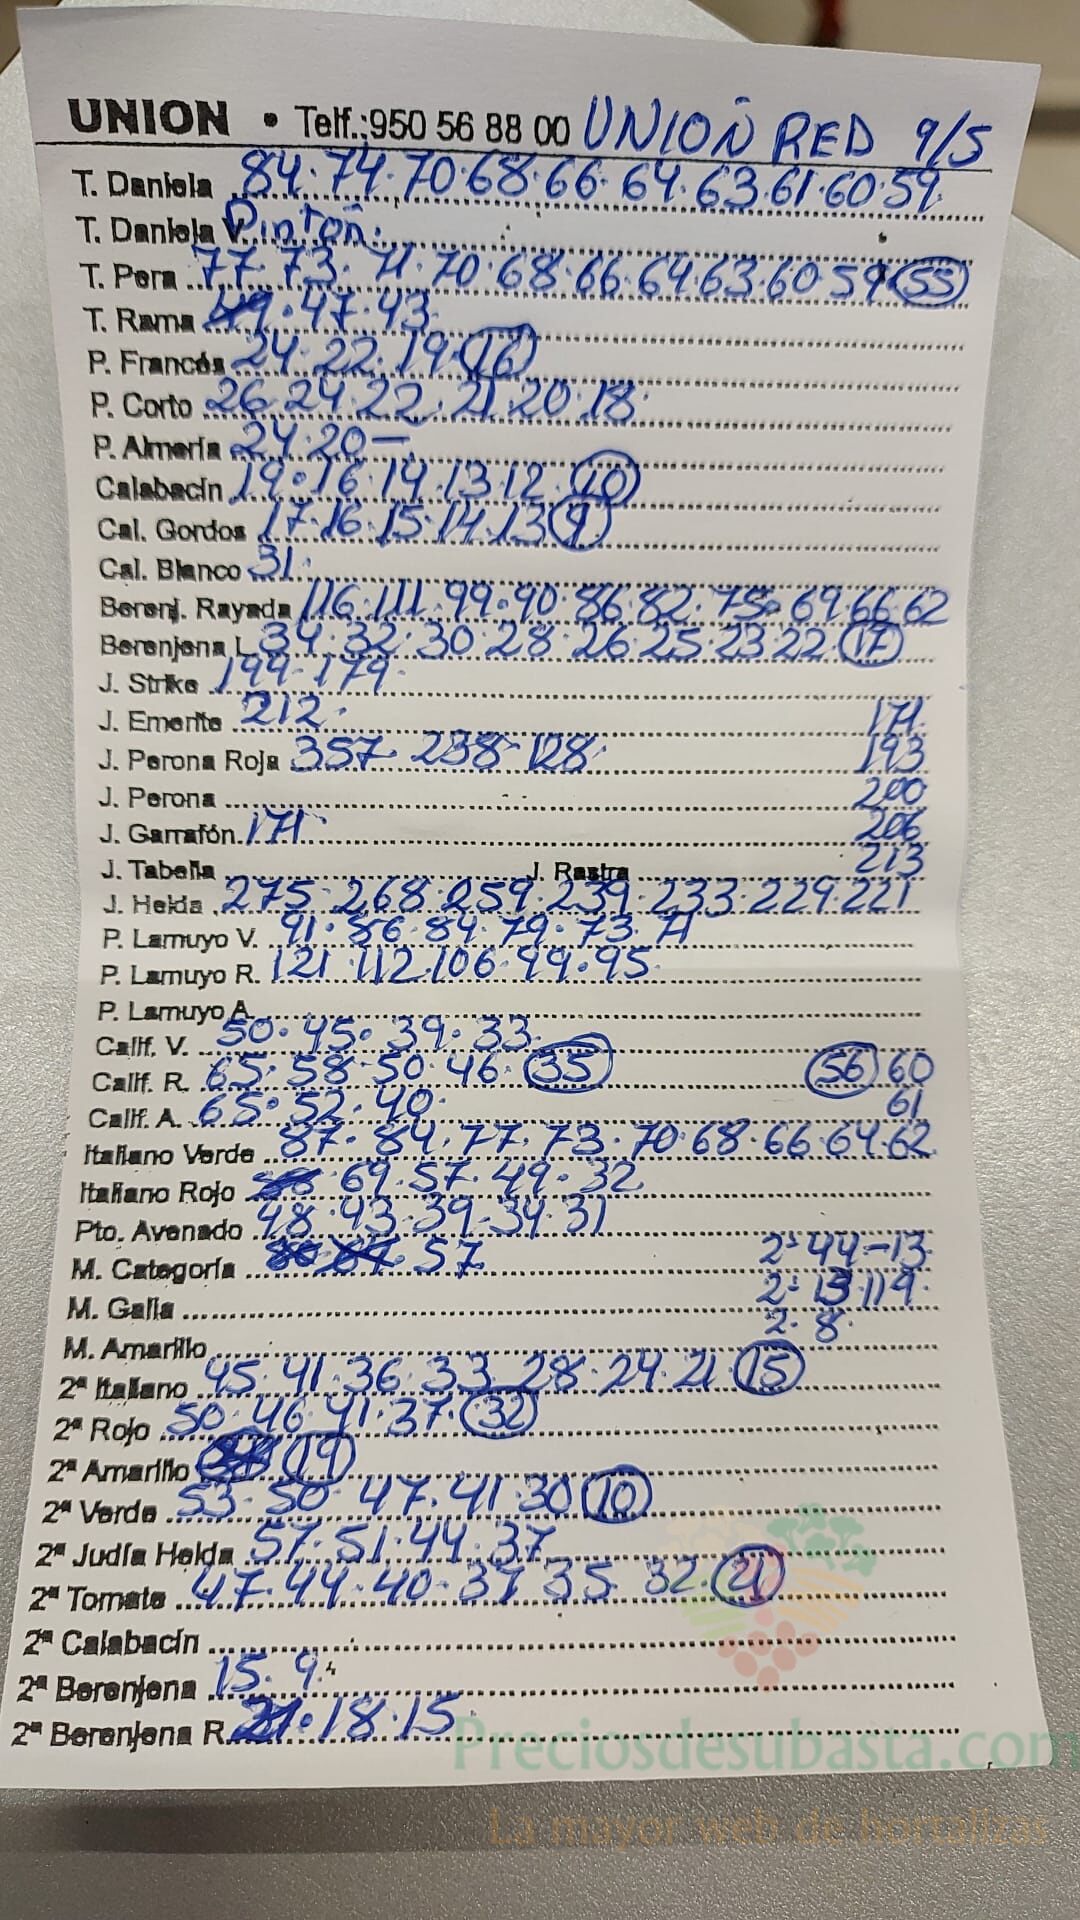 UNION • Telf.:950 56 88 00 UNIOÑ RED 9/5
T. Daniela 84.74.70.68.66.64.63.61.60.59
T. Daniela V. Pintoñ.
T. Pera 77.73.71.70.68.66.64.63.60.59 55
T. Rama 49.47.43
P. Francés 24.22.19.16
P. Corto 26.24.22.21.20.18.
P. Almería 24.20-
Calabacín 19.16.14.13.12.10
Cal. Gordos 17.16.15.14.13 9
Cal. Blanco 31.
Berenj. Rayada 116.111.99.90.86.82.75.69.66.62
Berenjena L. 34.32.30.28.26.25.23.22.17
J. Strike 199.179.
J. Emerite 212. 171.
J. Perona Roja 357.238-128. 193
J. Perona 200
J. Garrafón 171. 206
J. Tabella J. Rastra 213
J. Helda 275.268.259.239.233.229.221
P. Lamuyo V. 91.86.84.79.73.71
P. Lamuyo R. 121.112.106.99.95
P. Lamuyo A.
Calif. V. 50.45.39.33
Calif. R. 65.58.50.46.35 56 60
Calif. A. 65.52.40. 61
Italiano Verde 87.84.77.73.70.68.66.64.62
Italiano Rojo 69.57.49.32
Pto. Avenado 48.43.39.34.31
M. Categoría 57 2ª 44-13
M. Galia 2ª 13.119.
M. Amarillo 2.8.
2ª Italiano 45.41.36.33.28.24.21 15
2ª Rojo 50.46.41.37.32
2ª Amarillo 19
2ª Verde 53.50.47.41.30 10
2ª Judía Helda 57.51.44.37
2ª Tomate 47.44.40.37 35.32.21
2ª Calabacín
2ª Berenjena 15.9.
2ª Berenjena R. 21.18.15.
Preciosdesubasta.com
La mayor web de hortalizas